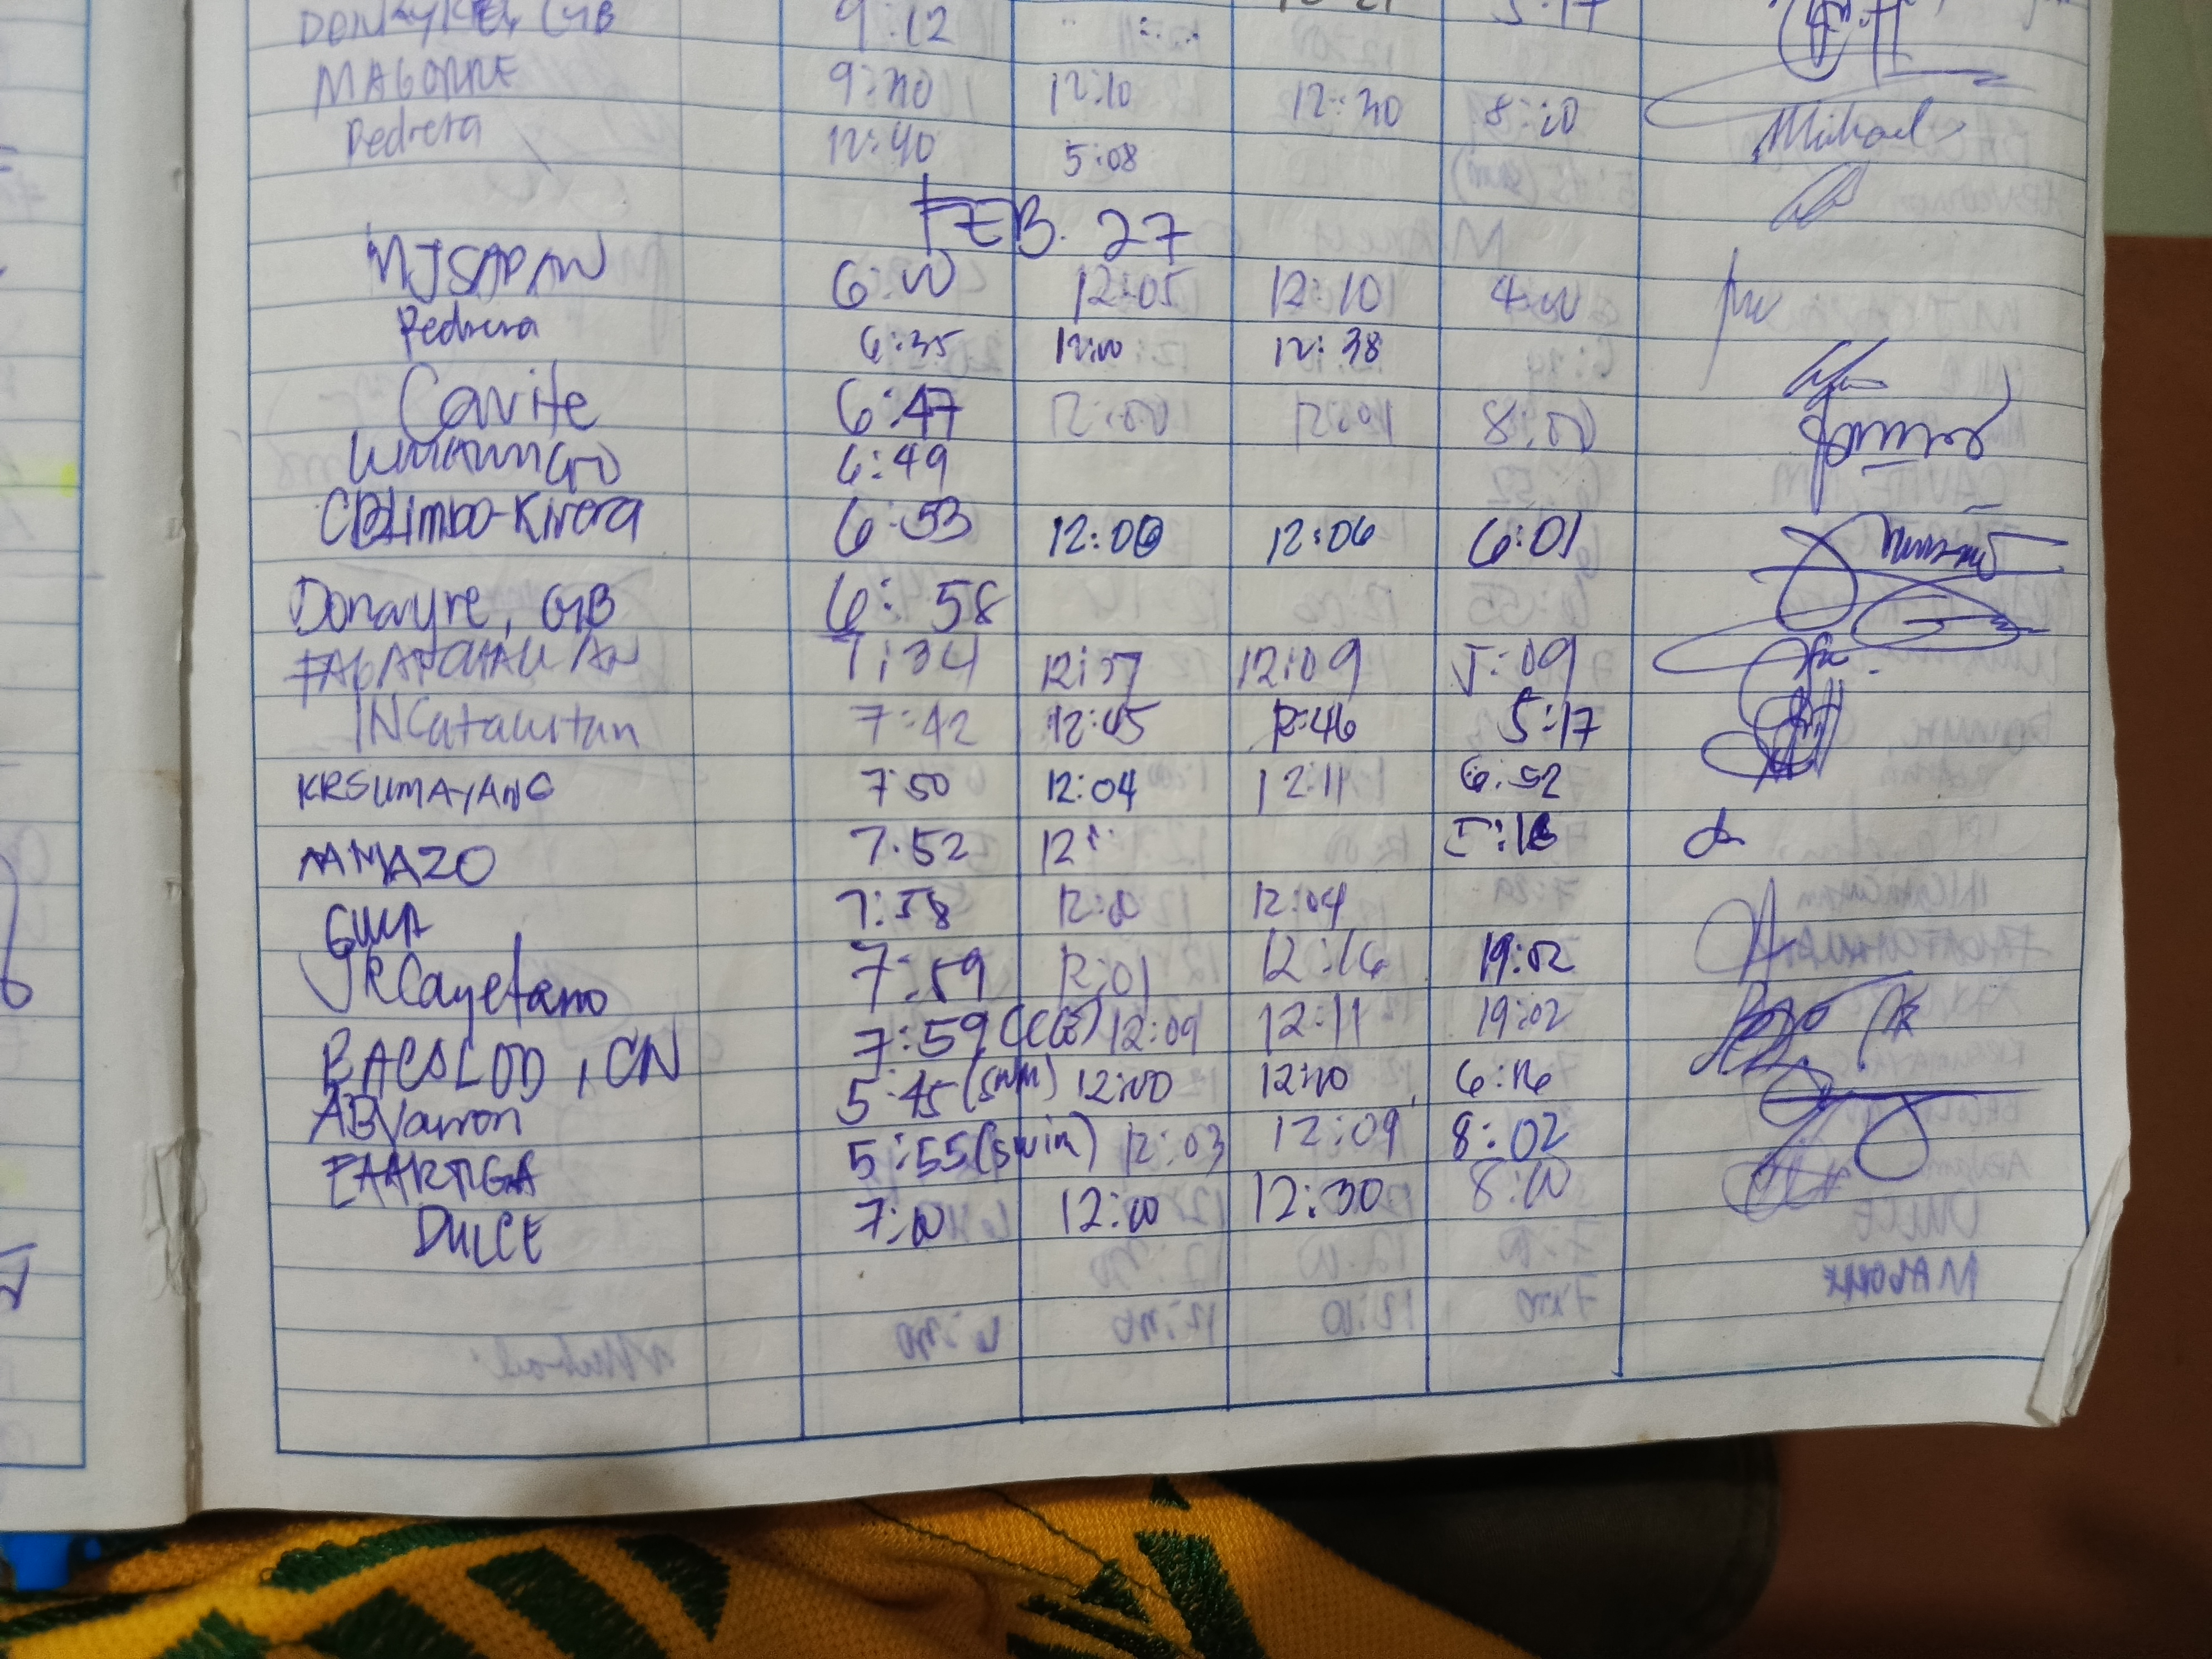 9:12 5:17
MAGONNE 9:40 12:10 12:30 8:20 Michael
Pedrera 12:40 5:08
FEB. 27
MJSAPAN 6:00 12:05 12:10 4:00
Pedrera 6:35 12:00 12:38
Cavite 6:47 12:00 12:01 8:00
6:49
CBLimbo-Rivera 6:53 12:00 12:06 6:01
Donayre, GB 6:58
7:34 12:37 12:09 5:09
INCatacutan 7:42 12:45 12:46 5:17
KRSUMAYANG 7:50 12:04 12:11 6:52
AAMAZO 7:52 12: 5:18
7:58 12:00 12:04
JRCayetano 7:59 12:01 12:16 19:02
BACOLOD, CN 7:59 12:09 12:11 19:02
ABVarron 5:45 (swm) 12:00 12:10 6:16
EAARTIGA 5:55 (swim) 12:03 12:09 8:02
DULCE 7:00 12:00 12:30 8:00